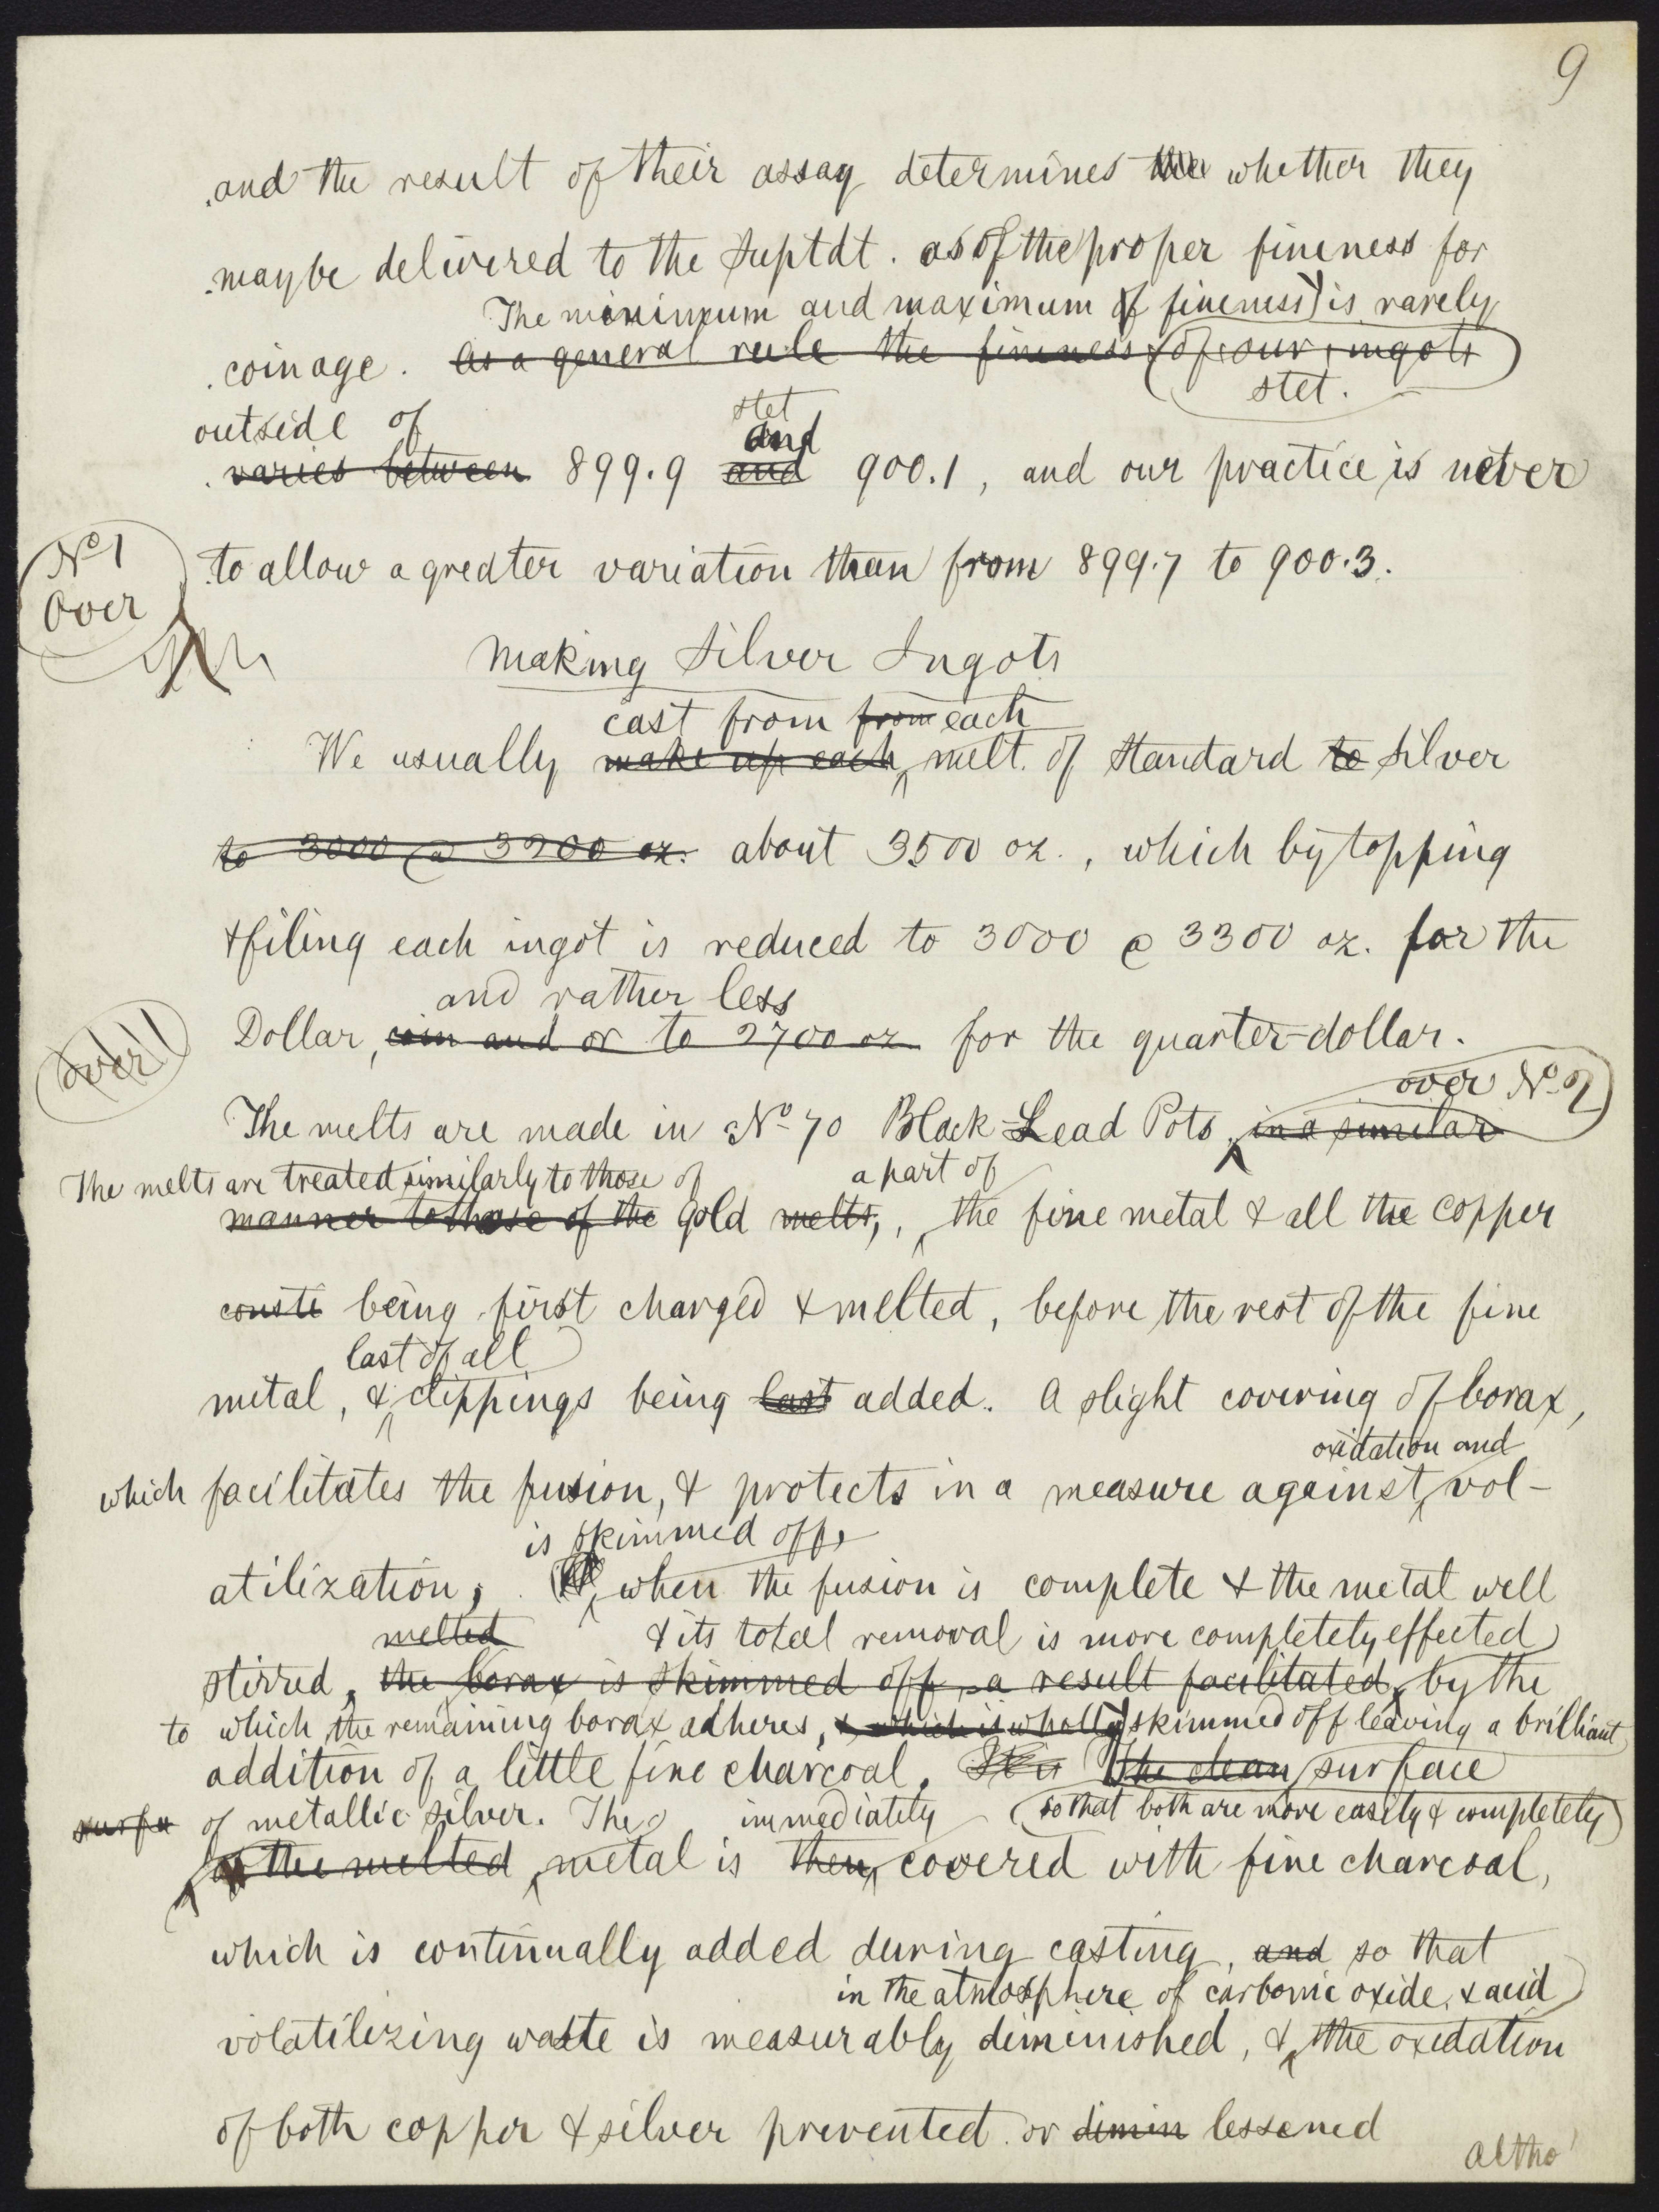 9
and the result of their assay determines the whether they
may be delivered to the Suptdt. as of the proper fineness for
The minimum and maximum of fineness is rarely
coinage. As a general rule the fineness of our ingots
stet.
outside of
stet
and
varies between 899.9 and 900.1, and our practice is never
No 1
Over
to allow a greater variation than from 899.7 to 900.3.
Making Silver Ingots
cast from from each
We usually make up each melt. of Standard to Silver
to 3000 @ 3200 oz. about 3500 oz., which by topping
& filing each ingot is reduced to 3000 @ 3300 oz. for the
and rather less
over!
Dollar, coin and or to 2700 oz for the quarter-dollar.
over No 2
The melts are made in No 70 Black-Lead Pots, in a similar
The melts are treated similarly to those of a part of
manner to those of the Gold melts, , the fine metal & all the copper
consti being first charged & melted, before the rest of the fine
last of all
metal, & clippings being last added. A slight covering of borax,
oxidation and
which facilitates the fusion, & protects in a measure against vol-
is skimmed off,
atilization, when the fusion is complete & the metal well
melted & its total removal is more completely effected
stirred, the borax is skimmed off, a result facilitated, by the
to which the remaining borax adheres, & which is wholly skimmed off leaving a brilliant
addition of a little fine charcoal. The clean surface
surfa of metallic silver. The immediately so that both are more easily & completely
the melted metal is then covered with fine charcoal,
which is continually added during casting, and so that
in the atmosphere of carbonic oxide, & acid
volatilizing waste is measurably diminished, & the oxidation
of both copper & silver prevented or dimin lessened
Altho'